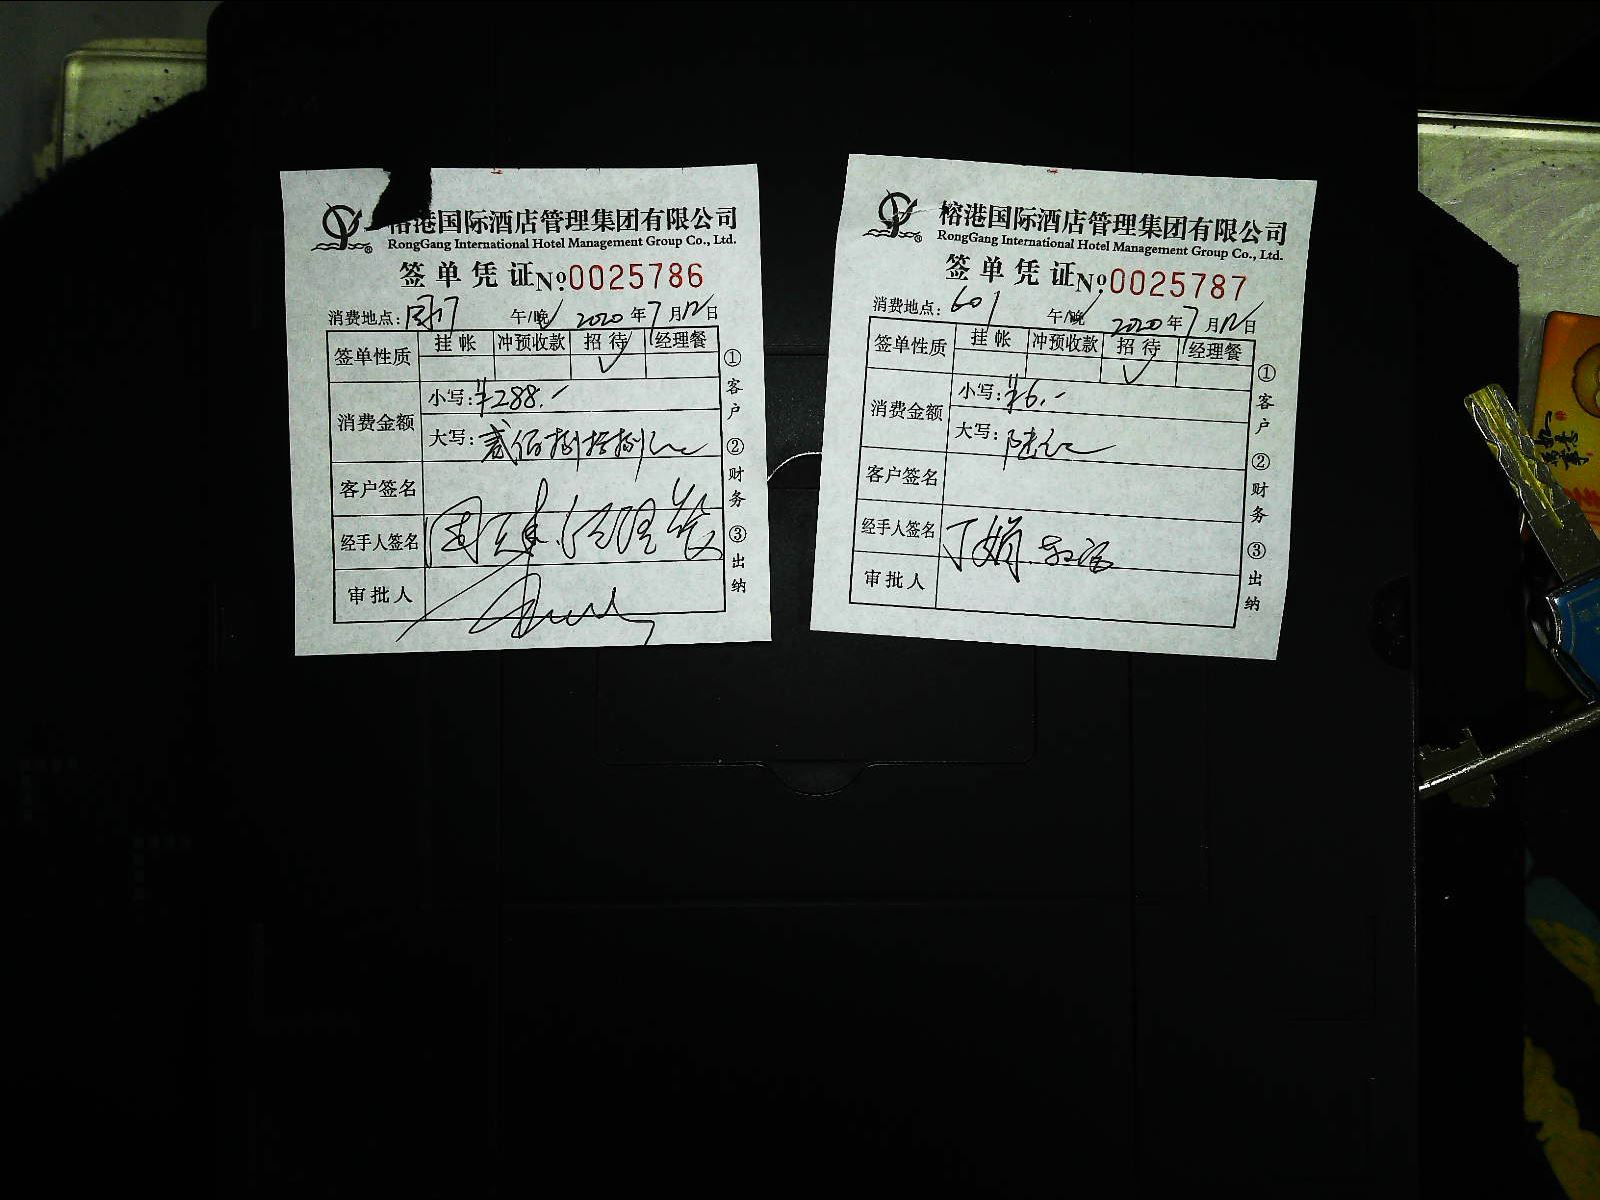 榕港国际酒店管理集团有限公司
RongGang International Hotel Management Group Co., Ltd.
签单凭证 No 0025786
消费地点: 午/晚 2020年7月12日
签单性质 挂帐 冲预收款 招待 经理餐
✓
消费金额
小写: ¥288.-
大写: 贰佰捌拾捌元
客户签名
经手人签名
审批人
①客户 ②财务 ③出纳
榕港国际酒店管理集团有限公司
RongGang International Hotel Management Group Co., Ltd.
签单凭证 No 0025787
消费地点: 601 午/晚 2020年7月12日
签单性质 挂帐 冲预收款 招待 经理餐
✓
消费金额
小写: ¥6.-
大写: 陆元
客户签名
经手人签名 丁娟
审批人
①客户 ②财务 ③出纳